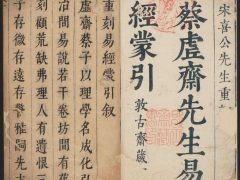 宋喜公先生重
蔡虛齋先生易
經蒙引
敦古齋藏
重刻易經蒙引叙
虛齋蔡子以理學名成化引
冶間易說若干卷坊間有舊
刻顧荒缺弗理人有遺恨三
子存微存遠存警雅詞先